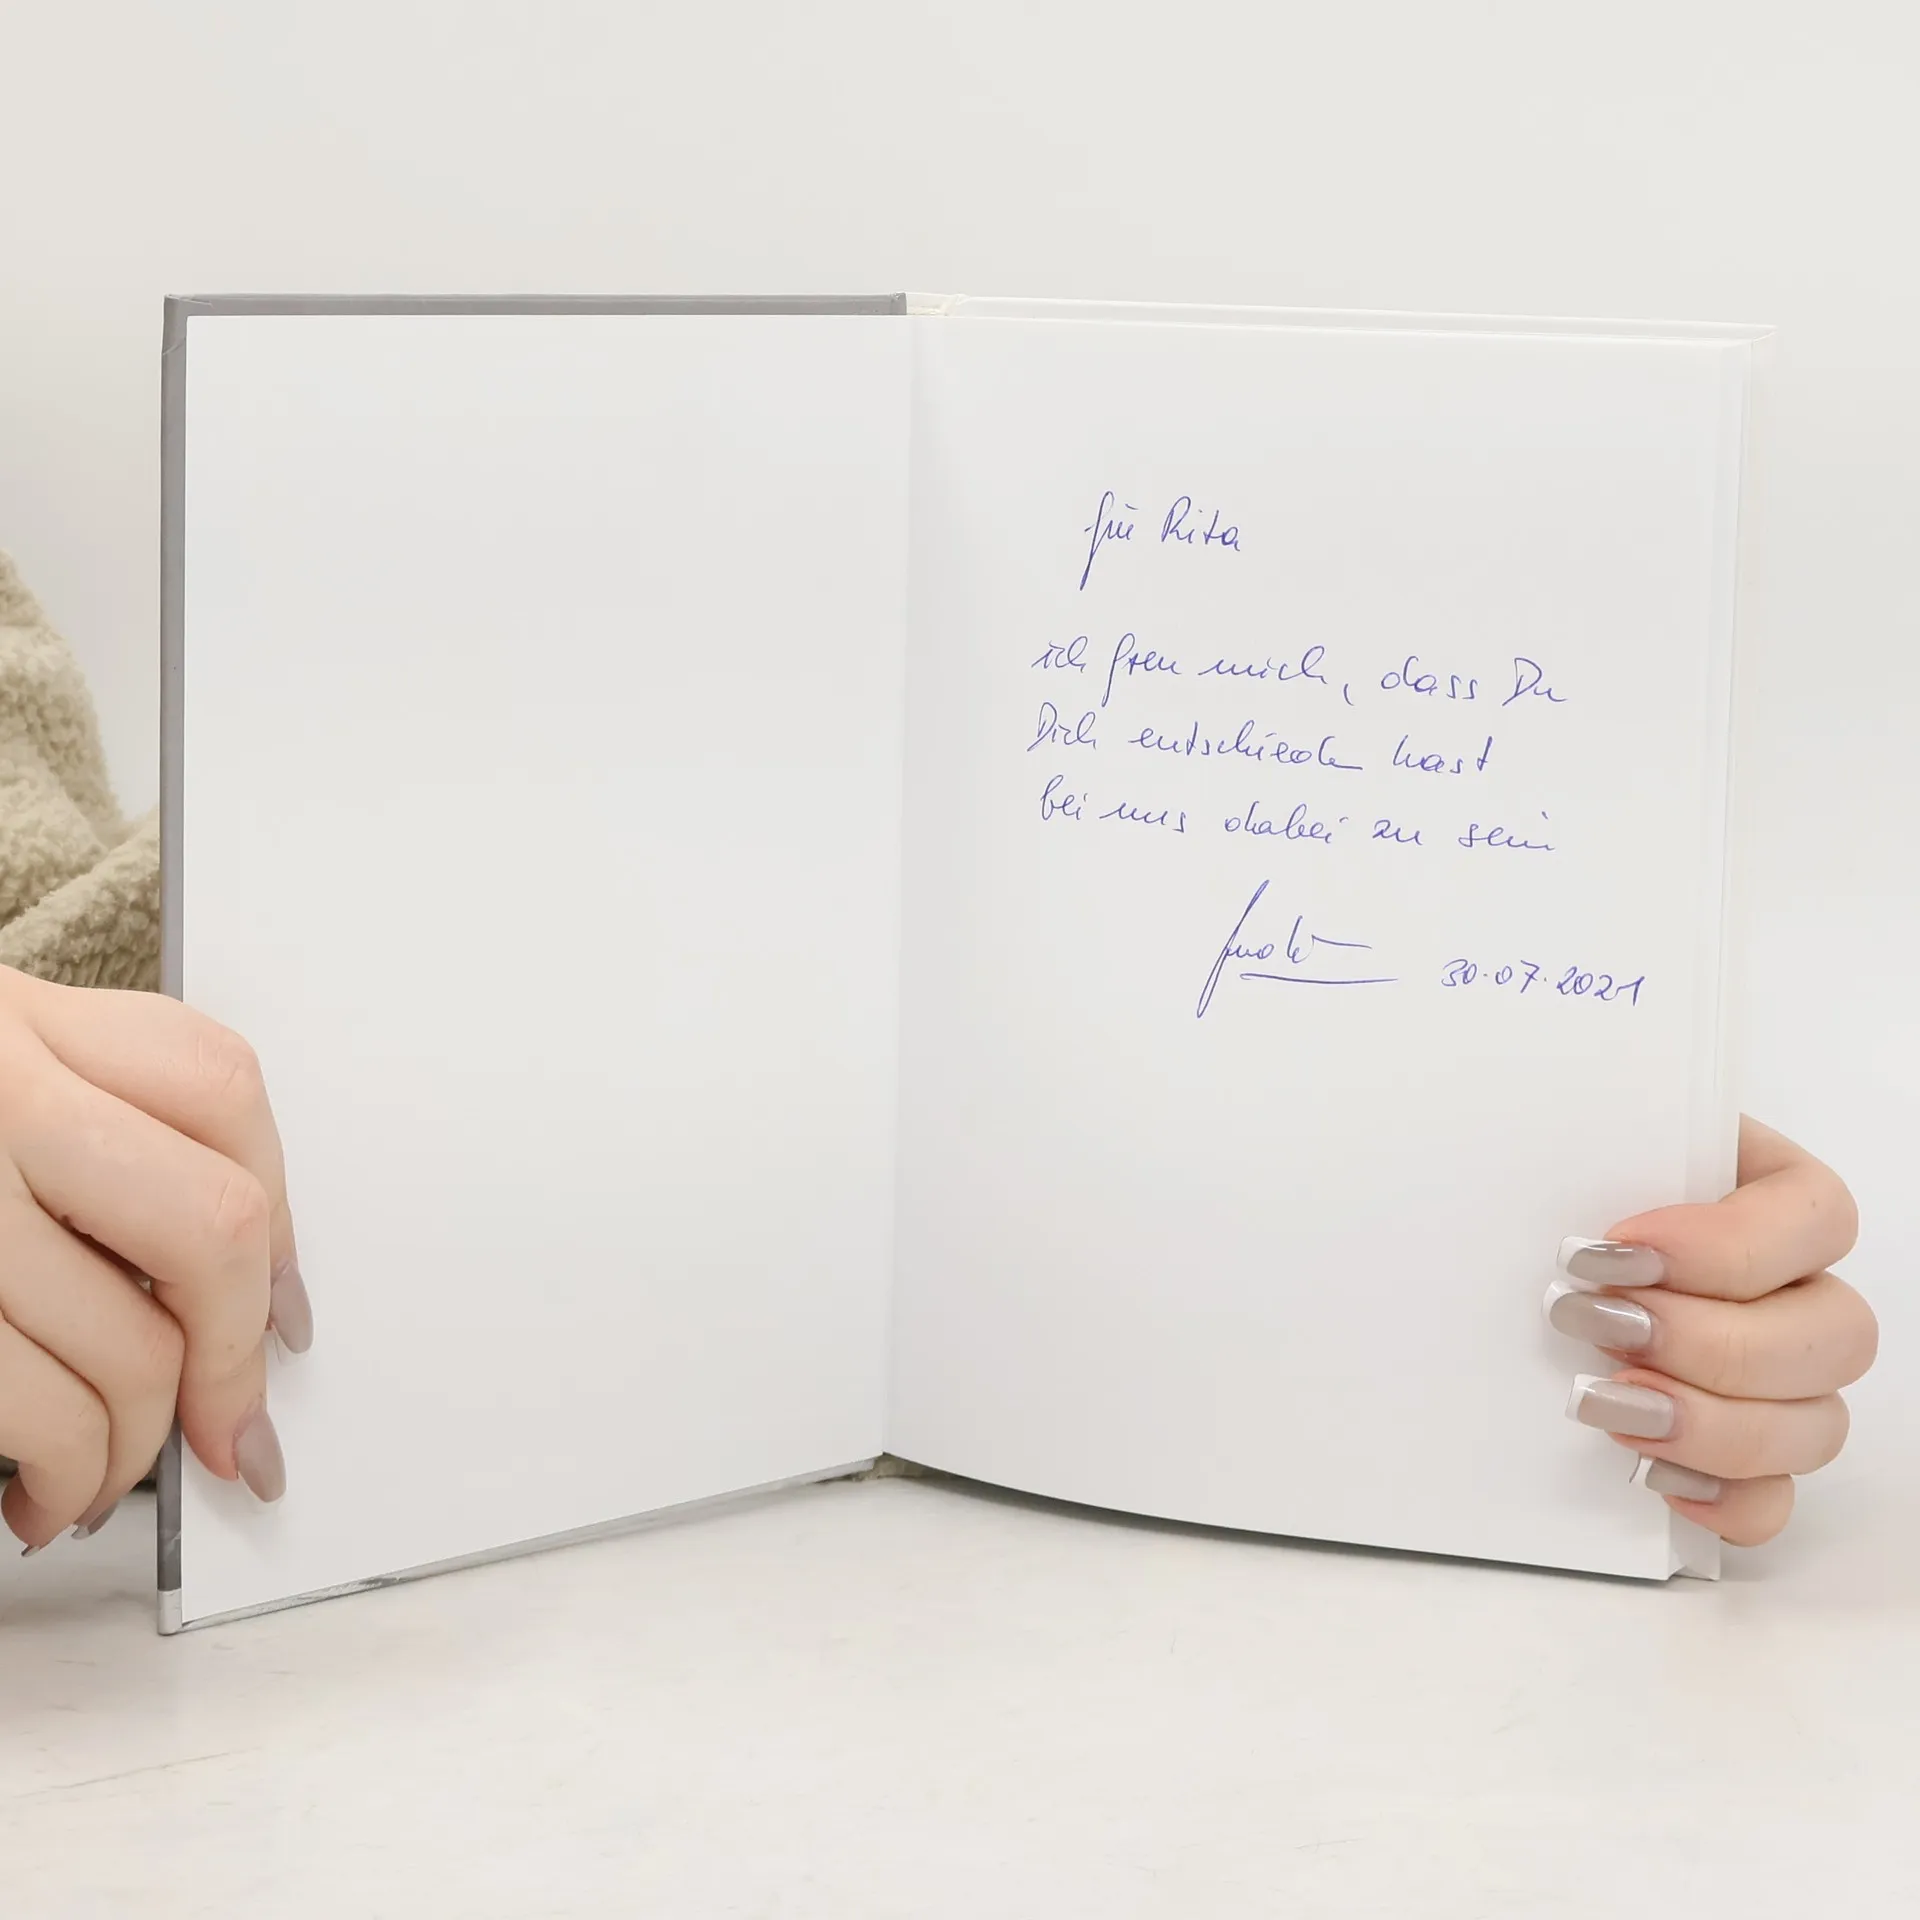 für Rita
ich freu mich, dass Du
Dich entschieden hast
bei uns dabei zu sein
30.07.2021